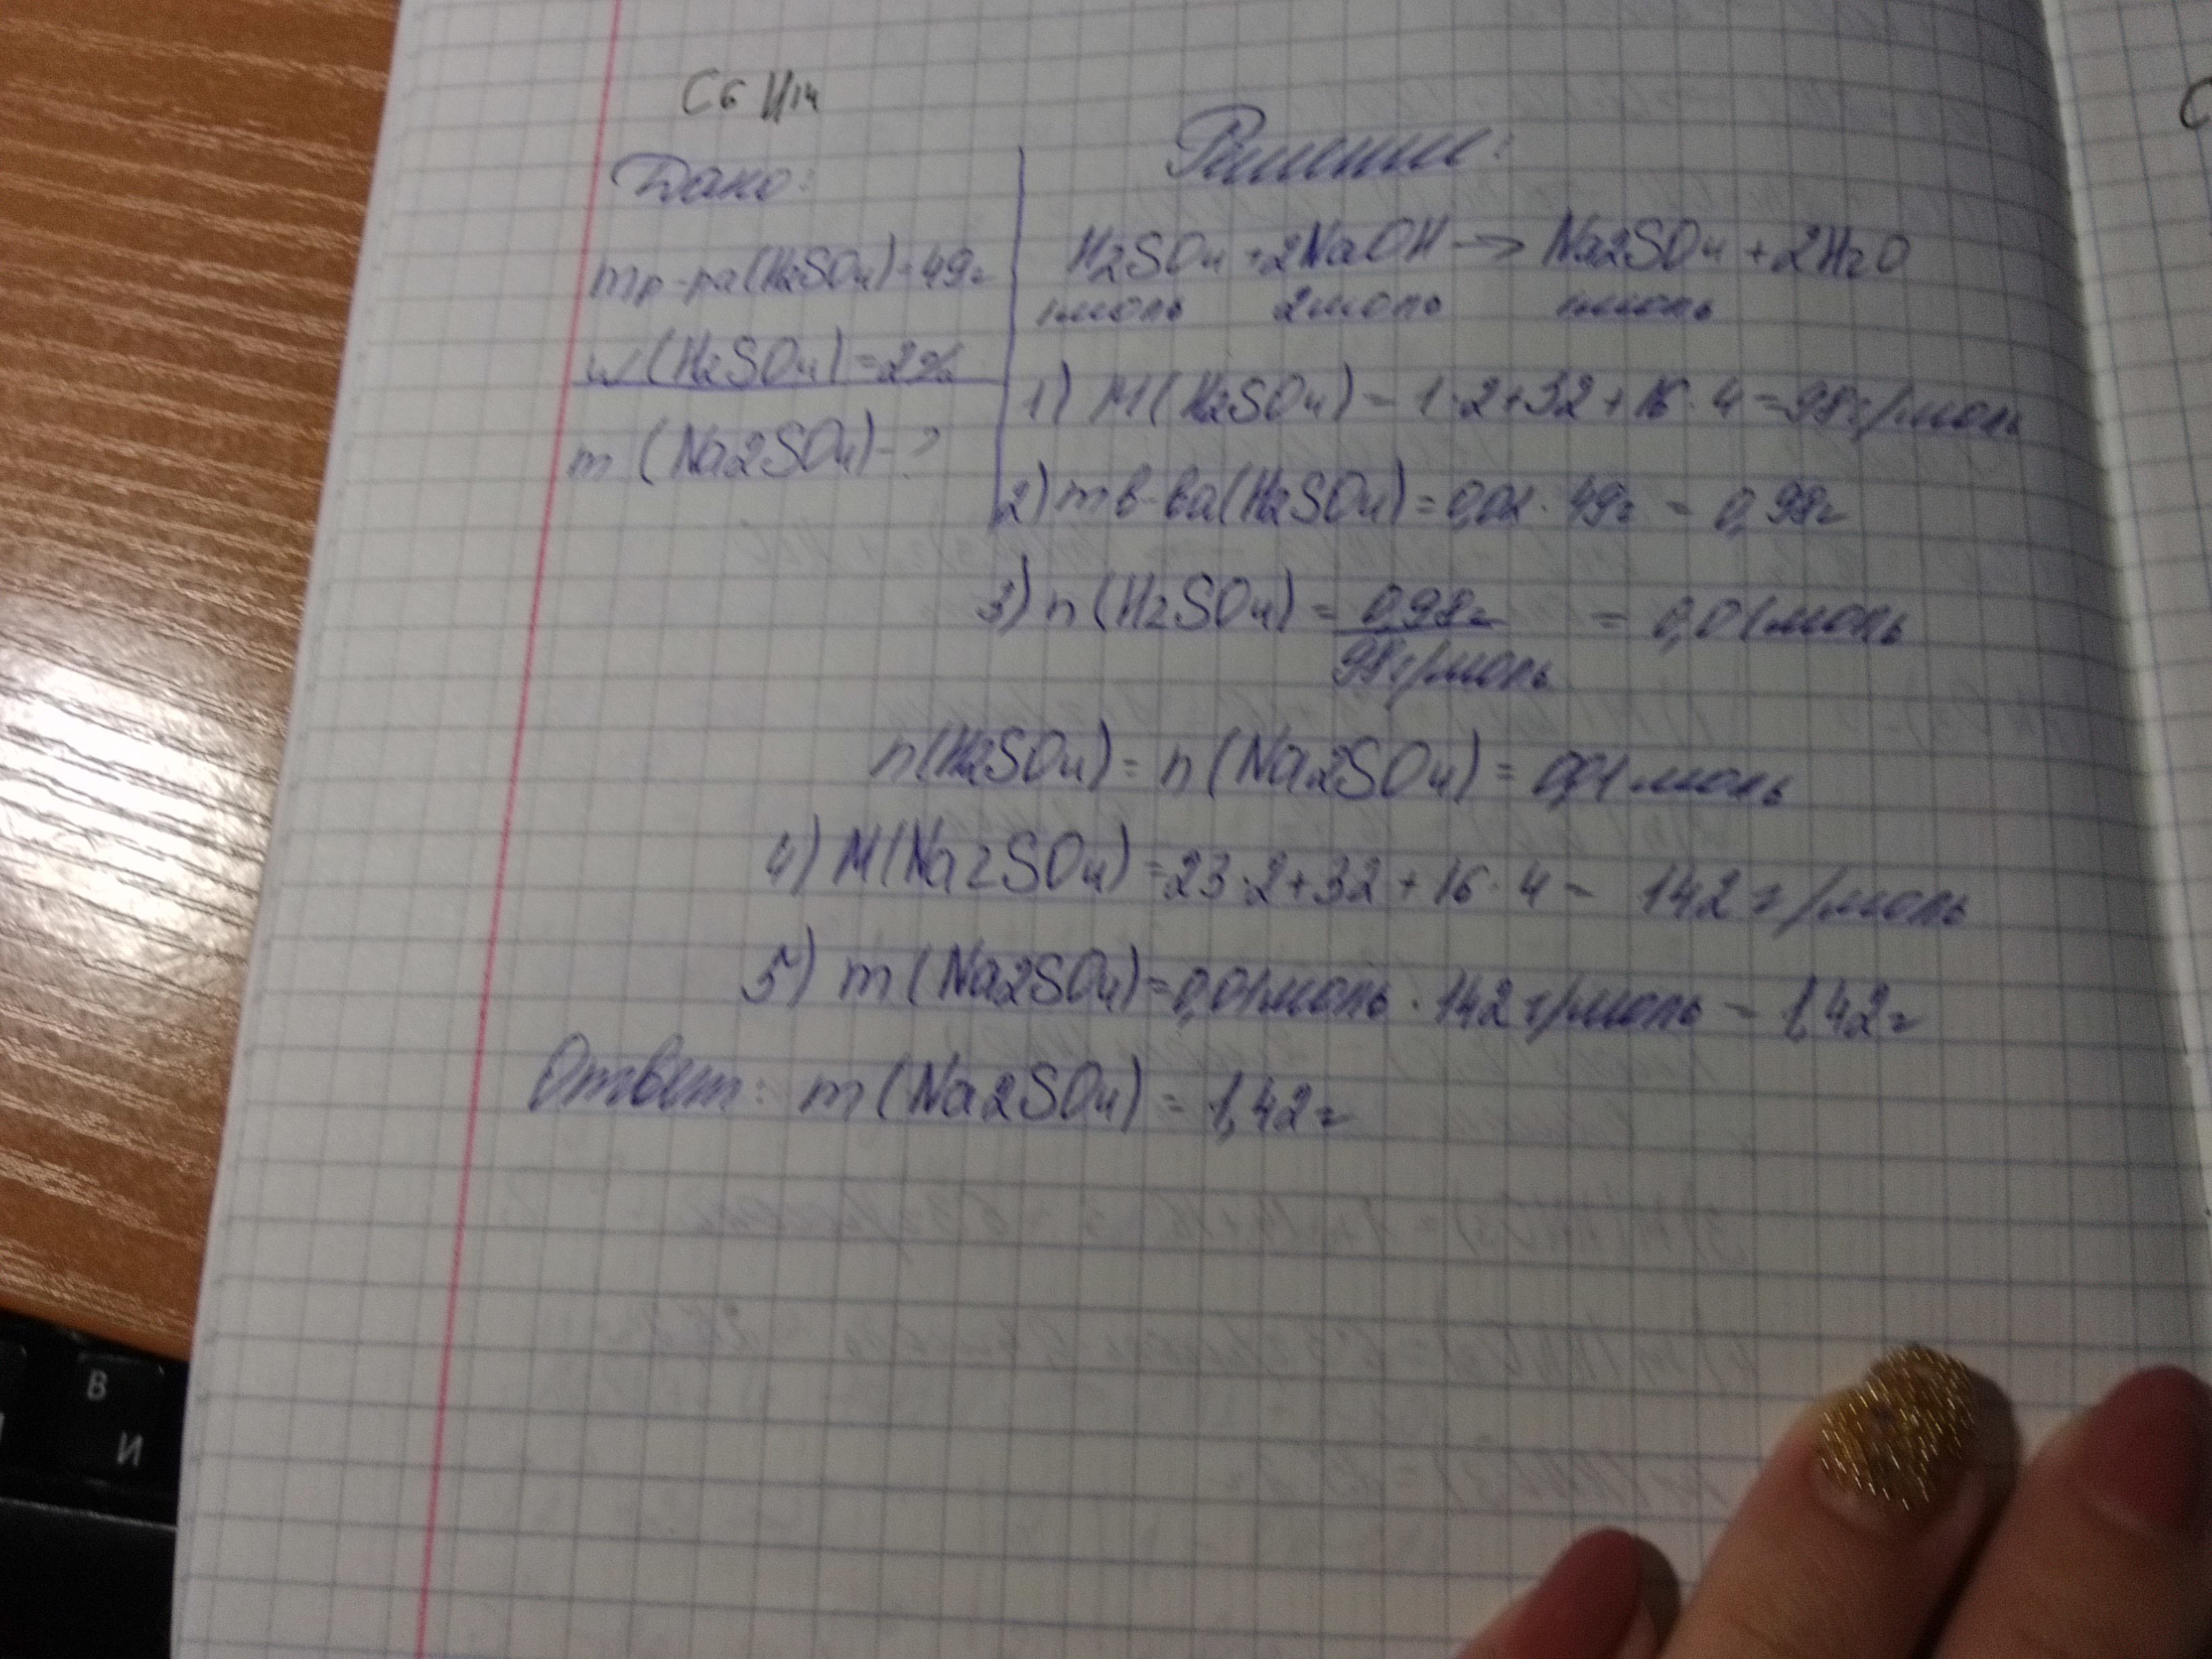 C6 H14
Дано:
Решение:
mр-ра(H2SO4)=49г
H2SO4+2NaOH→Na2SO4+2H2O
1моль 2моль 1моль
w(H2SO4)=2%
m(Na2SO4)-?
1) M(H2SO4)=1·2+32+16·4=98г/моль
2) mв-ва(H2SO4)=0,02·49г=0,98г
3) n(H2SO4)=0,98г/98г/моль=0,01моль
n(H2SO4)=n(Na2SO4)=0,01моль
4) M(Na2SO4)=23·2+32+16·4=142г/моль
5) m(Na2SO4)=0,01моль·142г/моль=1,42г
Ответ: m(Na2SO4)=1,42г
В
И